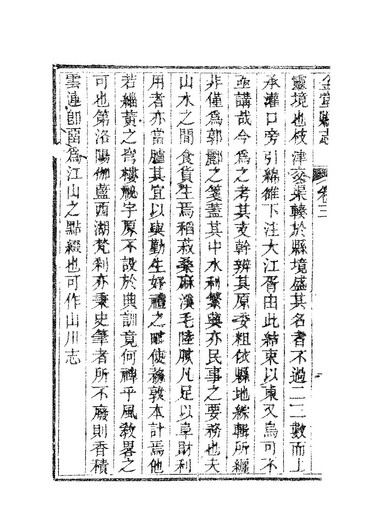 金堂縣志 卷三
靈境也枝津交渠轇於縣境盛其名者不過一二數而上
承灌口旁引綿雒下注大江胥由此結束以東又烏可不
亟講哉今為之考其支幹辨其原委粗依縣地綜輯所纚
非僅為郭酈之箋葢其中水利繫與亦民事之要務也夫
山水之間食貨生焉稻菽桑麻漢毛陸贓凡足以阜財利
用者亦當臚其宜以興勤生好禮之 使務敦本計焉他
若緇黃之宮樓 字原不設於典訓竟何裨乎風敎畧之
可也第洛陽伽藍西湖梵刹亦秉史筆者所不廢則香積
雲邉卽畱為江山之點綴也可作山川志